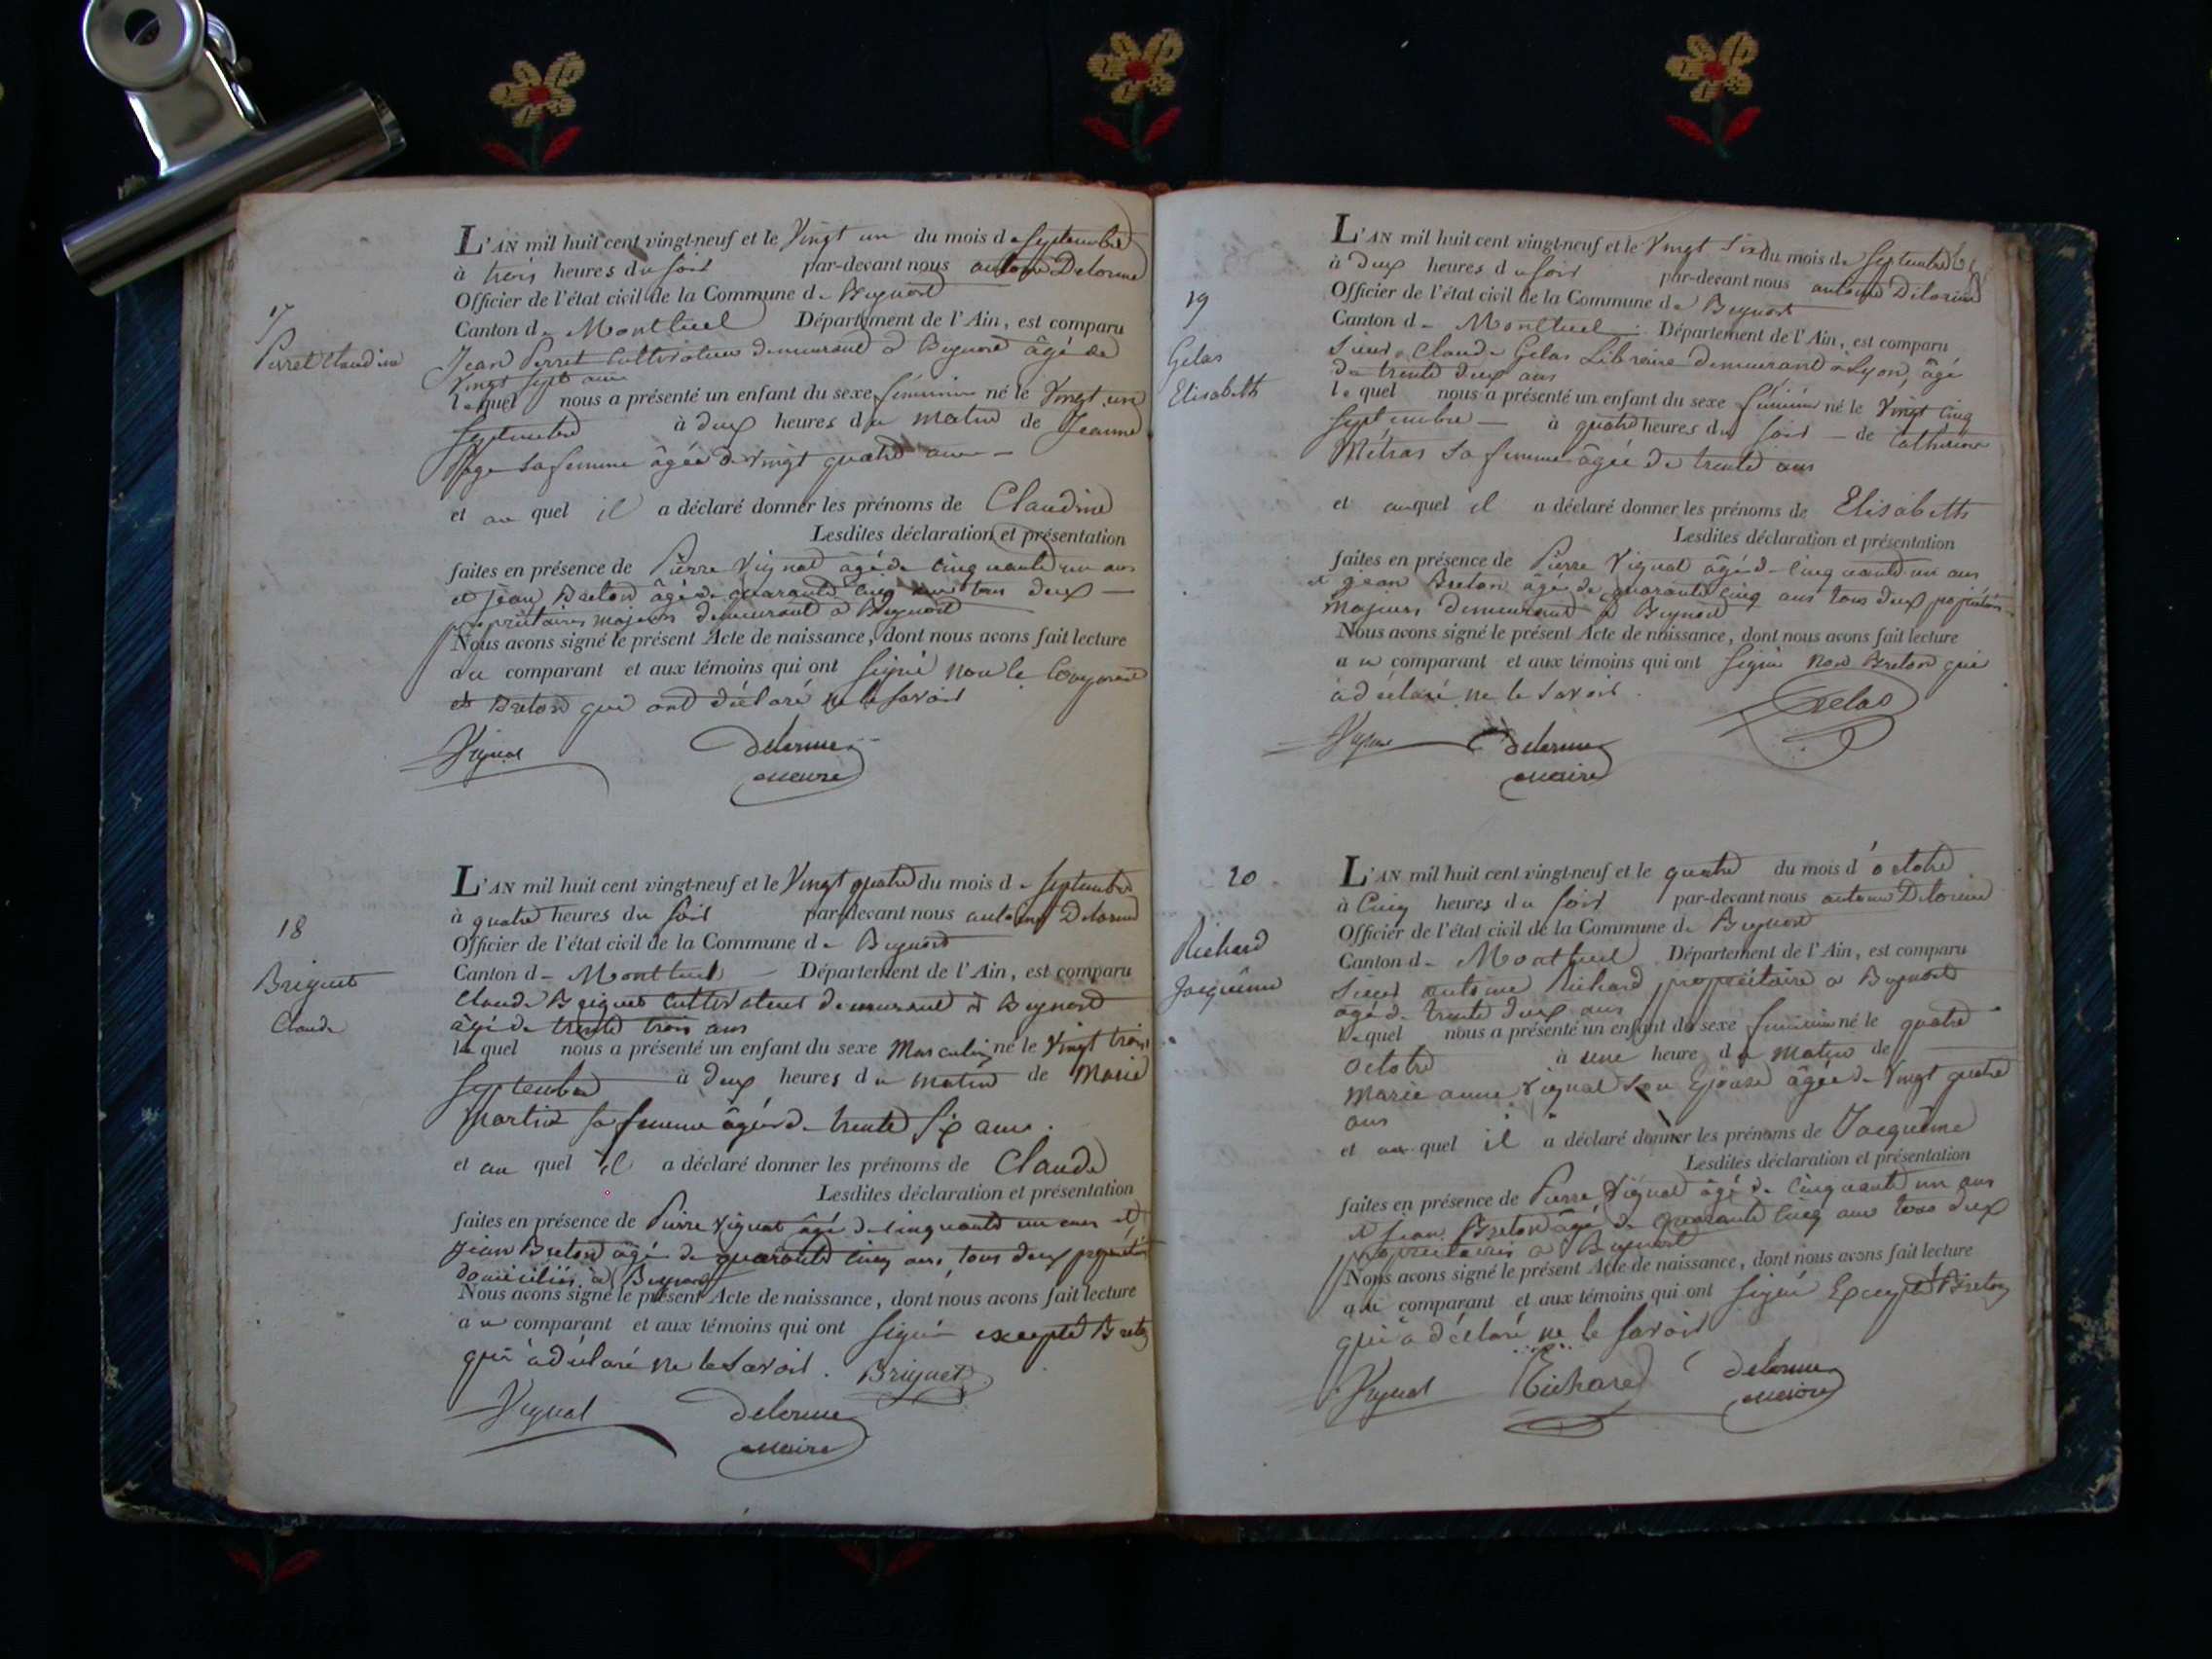 17
Perret Claudine
L'AN mil huit cent vingt-neuf et le Vingt un du mois de Septembre
à trois heures du soir par-devant nous antoine Delorme
Officier de l'état civil de la Commune de Beynost
Canton de Montluel Département de l'Ain, est comparu
Jean Perret Cultivateur demeurant à Beynost âgé de
Vingt sept ans
le quel nous a présenté un enfant du sexe féminin né le Vingt un
Septembre à deux heures du matin de Jeanne
Page sa femme âgée de Vingt quatre ans
et au quel il a déclaré donner les prénoms de Claudine
Lesdites déclaration et présentation
faites en présence de Pierre Vignat âgé de Cinquante un ans
et Jean Breton âgé de quarante cinq ans tous deux
propriétaires majeurs demeurant à Beynost
Nous avons signé le présent Acte de naissance, dont nous avons fait lecture
au comparant et aux témoins qui ont signé non le Comparant
et Breton qui ont déclaré ne le savoir
Vignat Delorme
maire
18
Briguet
Claude
L'AN mil huit cent vingt-neuf et le Vingt quatre du mois de Septembre
à quatre heures du soir par-devant nous antoine Delorme
Officier de l'état civil de la Commune de Beynost
Canton de Montluel Département de l'Ain, est comparu
Claude Briguet Cultivateur demeurant à Beynost
âgé de trente trois ans
le quel nous a présenté un enfant du sexe Masculin né le Vingt trois
Septembre à deux heures du matin de Marie
Martin sa femme âgée de trente six ans.
et au quel il a déclaré donner les prénoms de Claude
Lesdites déclaration et présentation
faites en présence de Pierre Vignat âgé de cinquante un ans et
Jean Breton âgé de quarante cinq ans, tous deux propriétaires
domiciliés à Beynost
Nous avons signé le présent Acte de naissance, dont nous avons fait lecture
au comparant et aux témoins qui ont signé excepté Breton
qui a déclaré ne le savoir. Briguet
Vignat Delorme
maire
19
Gelas
Elisabeth
L'AN mil huit cent vingt-neuf et le Vingt Six du mois de Septembre
à Deux heures du soir par-devant nous antoine Delorme
Officier de l'état civil de la Commune de Beynost
Canton de Montluel Département de l'Ain, est comparu
Sieur Claude Gelas Libraire demeurant à Lyon, âgé
de trente deux ans
le quel nous a présenté un enfant du sexe féminin né le Vingt Cinq
Septembre à quatre heures du soir de Catherine
Métras sa femme âgée de trente ans
et auquel il a déclaré donner les prénoms de Elisabeth
Lesdites déclaration et présentation
faites en présence de Pierre Vignat âgé de Cinquante un ans
et jean Breton âgé de quarante cinq ans tous deux propriétaires
Majeurs demeurant à Beynost
Nous avons signé le présent Acte de naissance, dont nous avons fait lecture
au comparant et aux témoins qui ont signé non Breton qui
a déclaré ne le savoir.
Gelas
Vignat Delorme
maire
20
Richard
Jacquéme
L'AN mil huit cent vingt-neuf et le quatre du mois d'octobre
à Cinq heures du soir par-devant nous antoine Delorme
Officier de l'état civil de la Commune de Beynost
Canton de Montluel Département de l'Ain, est comparu
Sieur antoine Richard propriétaire a Beynost
âgé de trente deux ans
le quel nous a présenté un enfant du sexe féminin né le quatre
octobre à une heure du matin de
Marie anne Vignat son Epouse âgée de Vingt quatre
ans
et au quel il a déclaré donner les prénoms de Jacquéme
Lesdites déclaration et présentation
faites en présence de Pierre Vignat âgé de Cinquante un ans
et jean Breton âgé de quarante Cinq ans tous deux
propriétaires a Beynost
Nous avons signé le présent Acte de naissance, dont nous avons fait lecture
au comparant et aux témoins qui ont signé Excepté Breton
qui a déclaré ne le savoir
Vignat Richard Delorme
maire